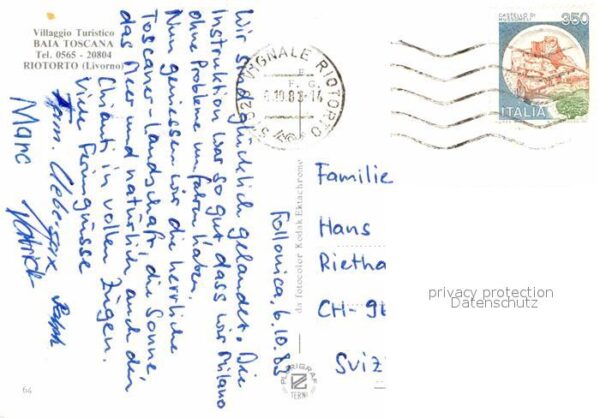 Villaggio Turistico
BAIA TOSCANA
Tel. 0565 - 20804
RIOTORTO (Livorno)
Follonica, 6.10.83
Wir sind glücklich gelandet. Die
Instruktion war so gut dass wir Milano
ohne Probleme um fahren haben.
Nun geniessen wir die herrliche
Toscaner-Landschaft, die Sonne
das Meer und natürlich auch den
Chianti in vollen Zügen.
Viele Feriengrüsse
Fam.
Ralph
Marc
Patrick
64
da fotocolor Kodak Ektachrome
PLURIGRAF
TERNI
57020 VIGNALE RIOTORTO
F. G.
6.10.83-14
CASTELLO DI
MUSSOMELI
350
ITALIA
Familie
Hans
Rietha
CH-96
Sviz
privacy protection
Datenschutz